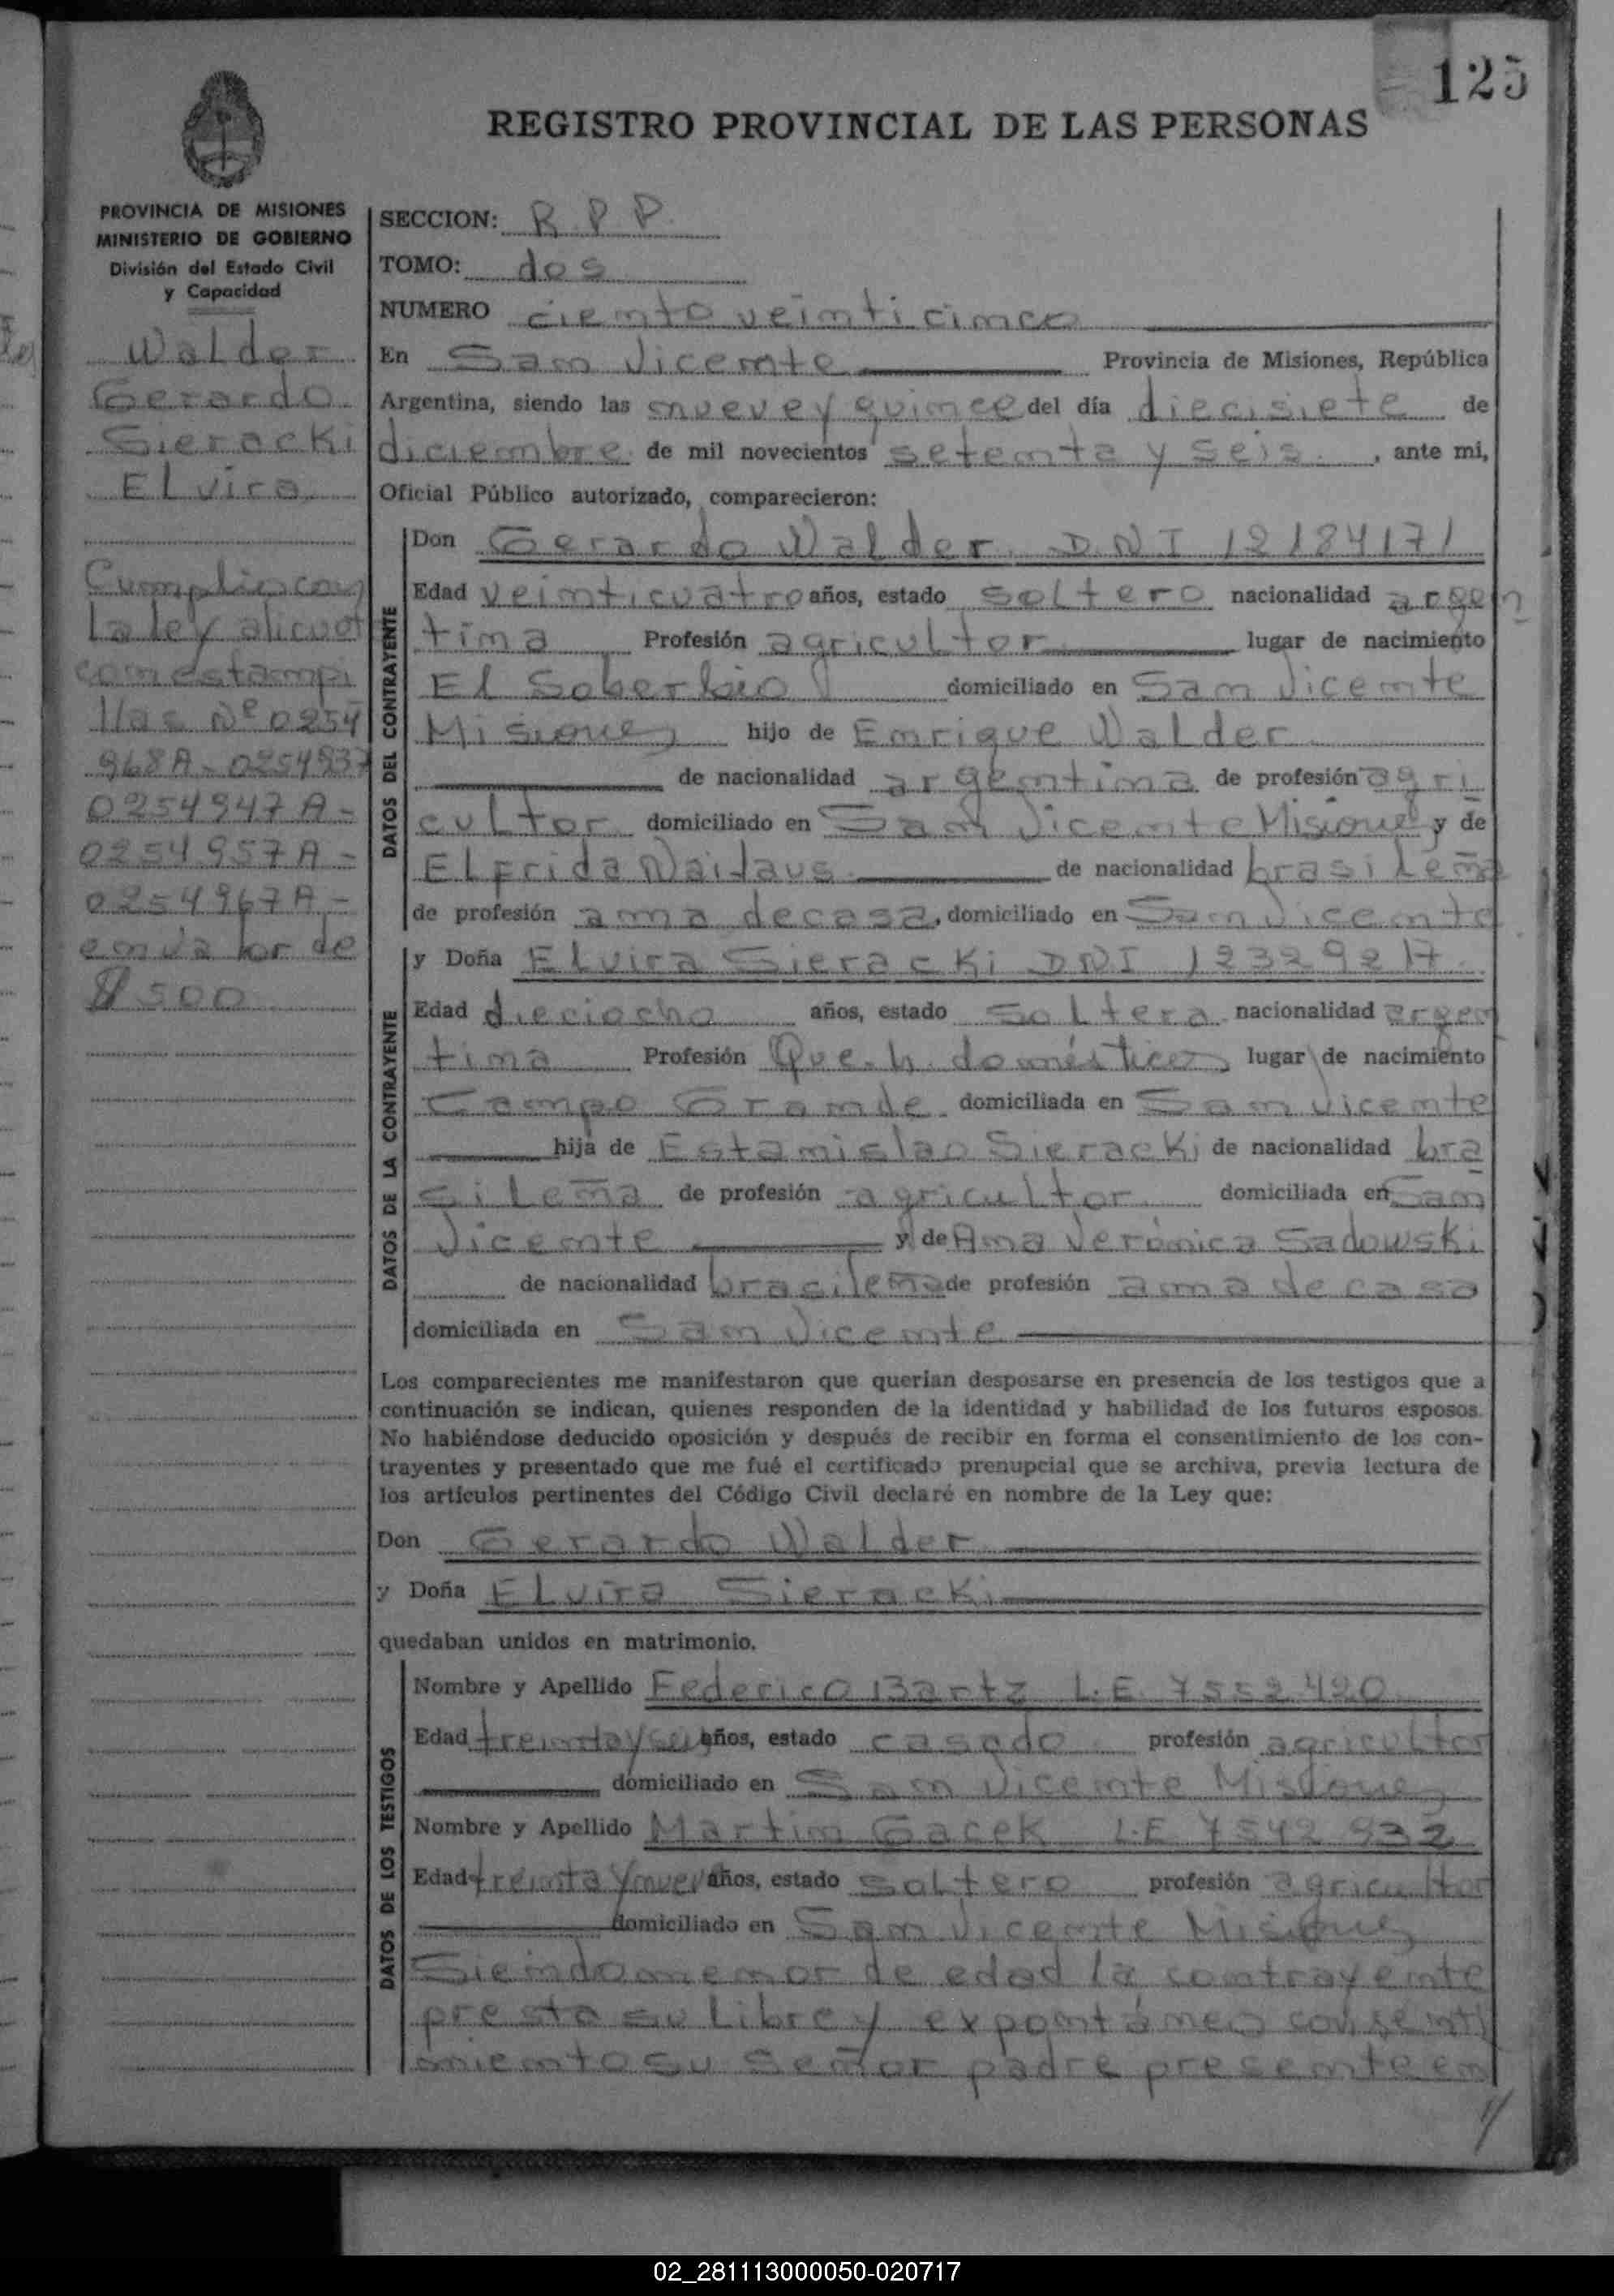 125
REGISTRO PROVINCIAL DE LAS PERSONAS
PROVINCIA DE MISIONES
MINISTERIO DE GOBIERNO
División del Estado Civil
y Capacidad
Walder
Gerardo
Sieracki
Elvira
Cumplio con
la ley alicuot
con estampi
llas Nº 0254
968A - 0254937
0254947A -
0254957A -
0254967A -
en valor de
$ 500
SECCION: R.P.P.
TOMO: dos
NUMERO ciento veinticinco
En San Vicente Provincia de Misiones, República
Argentina, siendo las nueve y quince del día diecisiete de
diciembre de mil novecientos setenta y seis, ante mi,
Oficial Público autorizado, comparecieron:
DATOS DEL CONTRAYENTE
Don Gerardo Walder DNI 12184171
Edad veinticuatro años, estado soltero nacionalidad argen
tina Profesión agricultor lugar de nacimiento
El Soberbio domiciliado en San Vicente
Misiones hijo de Enrique Walder
de nacionalidad argentina de profesión agri
cultor domiciliado en San Vicente Misiones y de
Elfrida de nacionalidad brasileña
de profesión ama de casa, domiciliado en San Vicente
DATOS DE LA CONTRAYENTE
y Doña Elvira Sieracki DNI 12329217
Edad dieciocho años, estado soltera nacionalidad argen
tina Profesión Que. h. domésticos lugar de nacimiento
Campo Grande domiciliada en San Vicente
hija de Estanislao Sieracki de nacionalidad bra
sileña de profesión agricultor domiciliada en San
Vicente y de Ana Verónica Sadowski
de nacionalidad brasileña de profesión ama de casa
domiciliada en San Vicente
Los comparecientes me manifestaron que querían desposarse en presencia de los testigos que a
continuación se indican, quienes responden de la identidad y habilidad de los futuros esposos.
No habiéndose deducido oposición y después de recibir en forma el consentimiento de los con-
trayentes y presentado que me fué el certificado prenupcial que se archiva, previa lectura de
los artículos pertinentes del Código Civil declaré en nombre de la Ley que:
Don Gerardo Walder
y Doña Elvira Sieracki
quedaban unidos en matrimonio.
DATOS DE LOS TESTIGOS
Nombre y Apellido Federico Bartz L.E. 7552420
Edad treinta y seis años, estado casado profesión agricultor
domiciliado en San Vicente Misiones
Nombre y Apellido Martin Gacek L.E 7542932
Edad treinta y nueve años, estado soltero profesión agricultor
domiciliado en San Vicente Misiones
Siendo menor de edad la contrayente
presta su libre y expontáneo consenti
miento su señor padre presente en
//
02_281113000050-020717